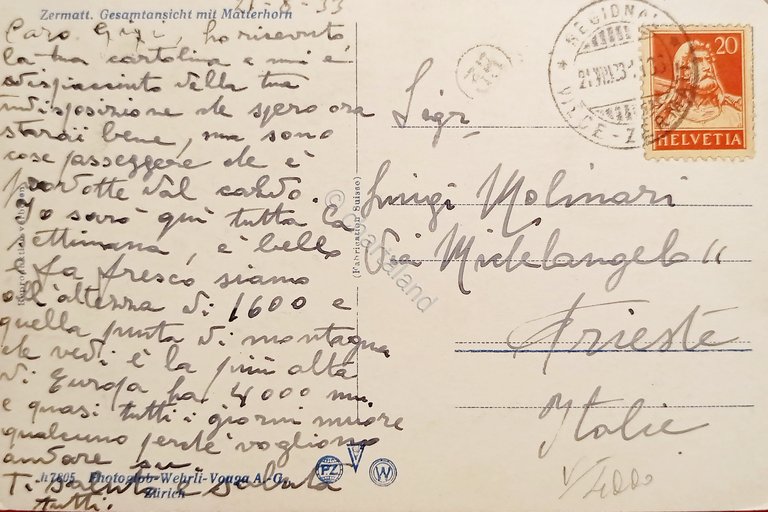 Zermatt. Gesamtansicht mit Matterhorn
21-8-33
Caro Gigi, ho ricevuto
la tua cartolina e mi è
dispiaciuto della tua
indisposizione che spero ora
starai bene, ma sono
cose passeggere che è
prodotte dal caldo.
Io sarò qui tutta la
settimana, è bello
e fa fresco siamo
all'altezza di 1600 e
quella punta di montagna
che vedi è la più alta
di Europa ha 4000 m.
e quasi tutti i giorni muore
qualcuno perchè vogliono
andare su
Ti saluto e saluta
tutti.
h 7605 Photoglob-Wehrli-Vouga A.-G.
Zürich
(Fabrication Suisse)
PZ
V
W
REGIONAL
VIÈGE - ZERMATT
20
HELVETIA
Sigr
Luigi Molinari
Via Michelangelo
Trieste
Italie
© Cartaland